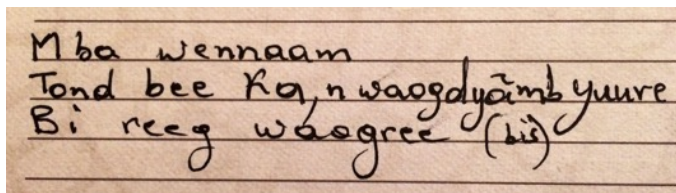 Mba wennaam
Tond bee Ka, n waogdyãmb yuure
Bi reeg waogree (bis)